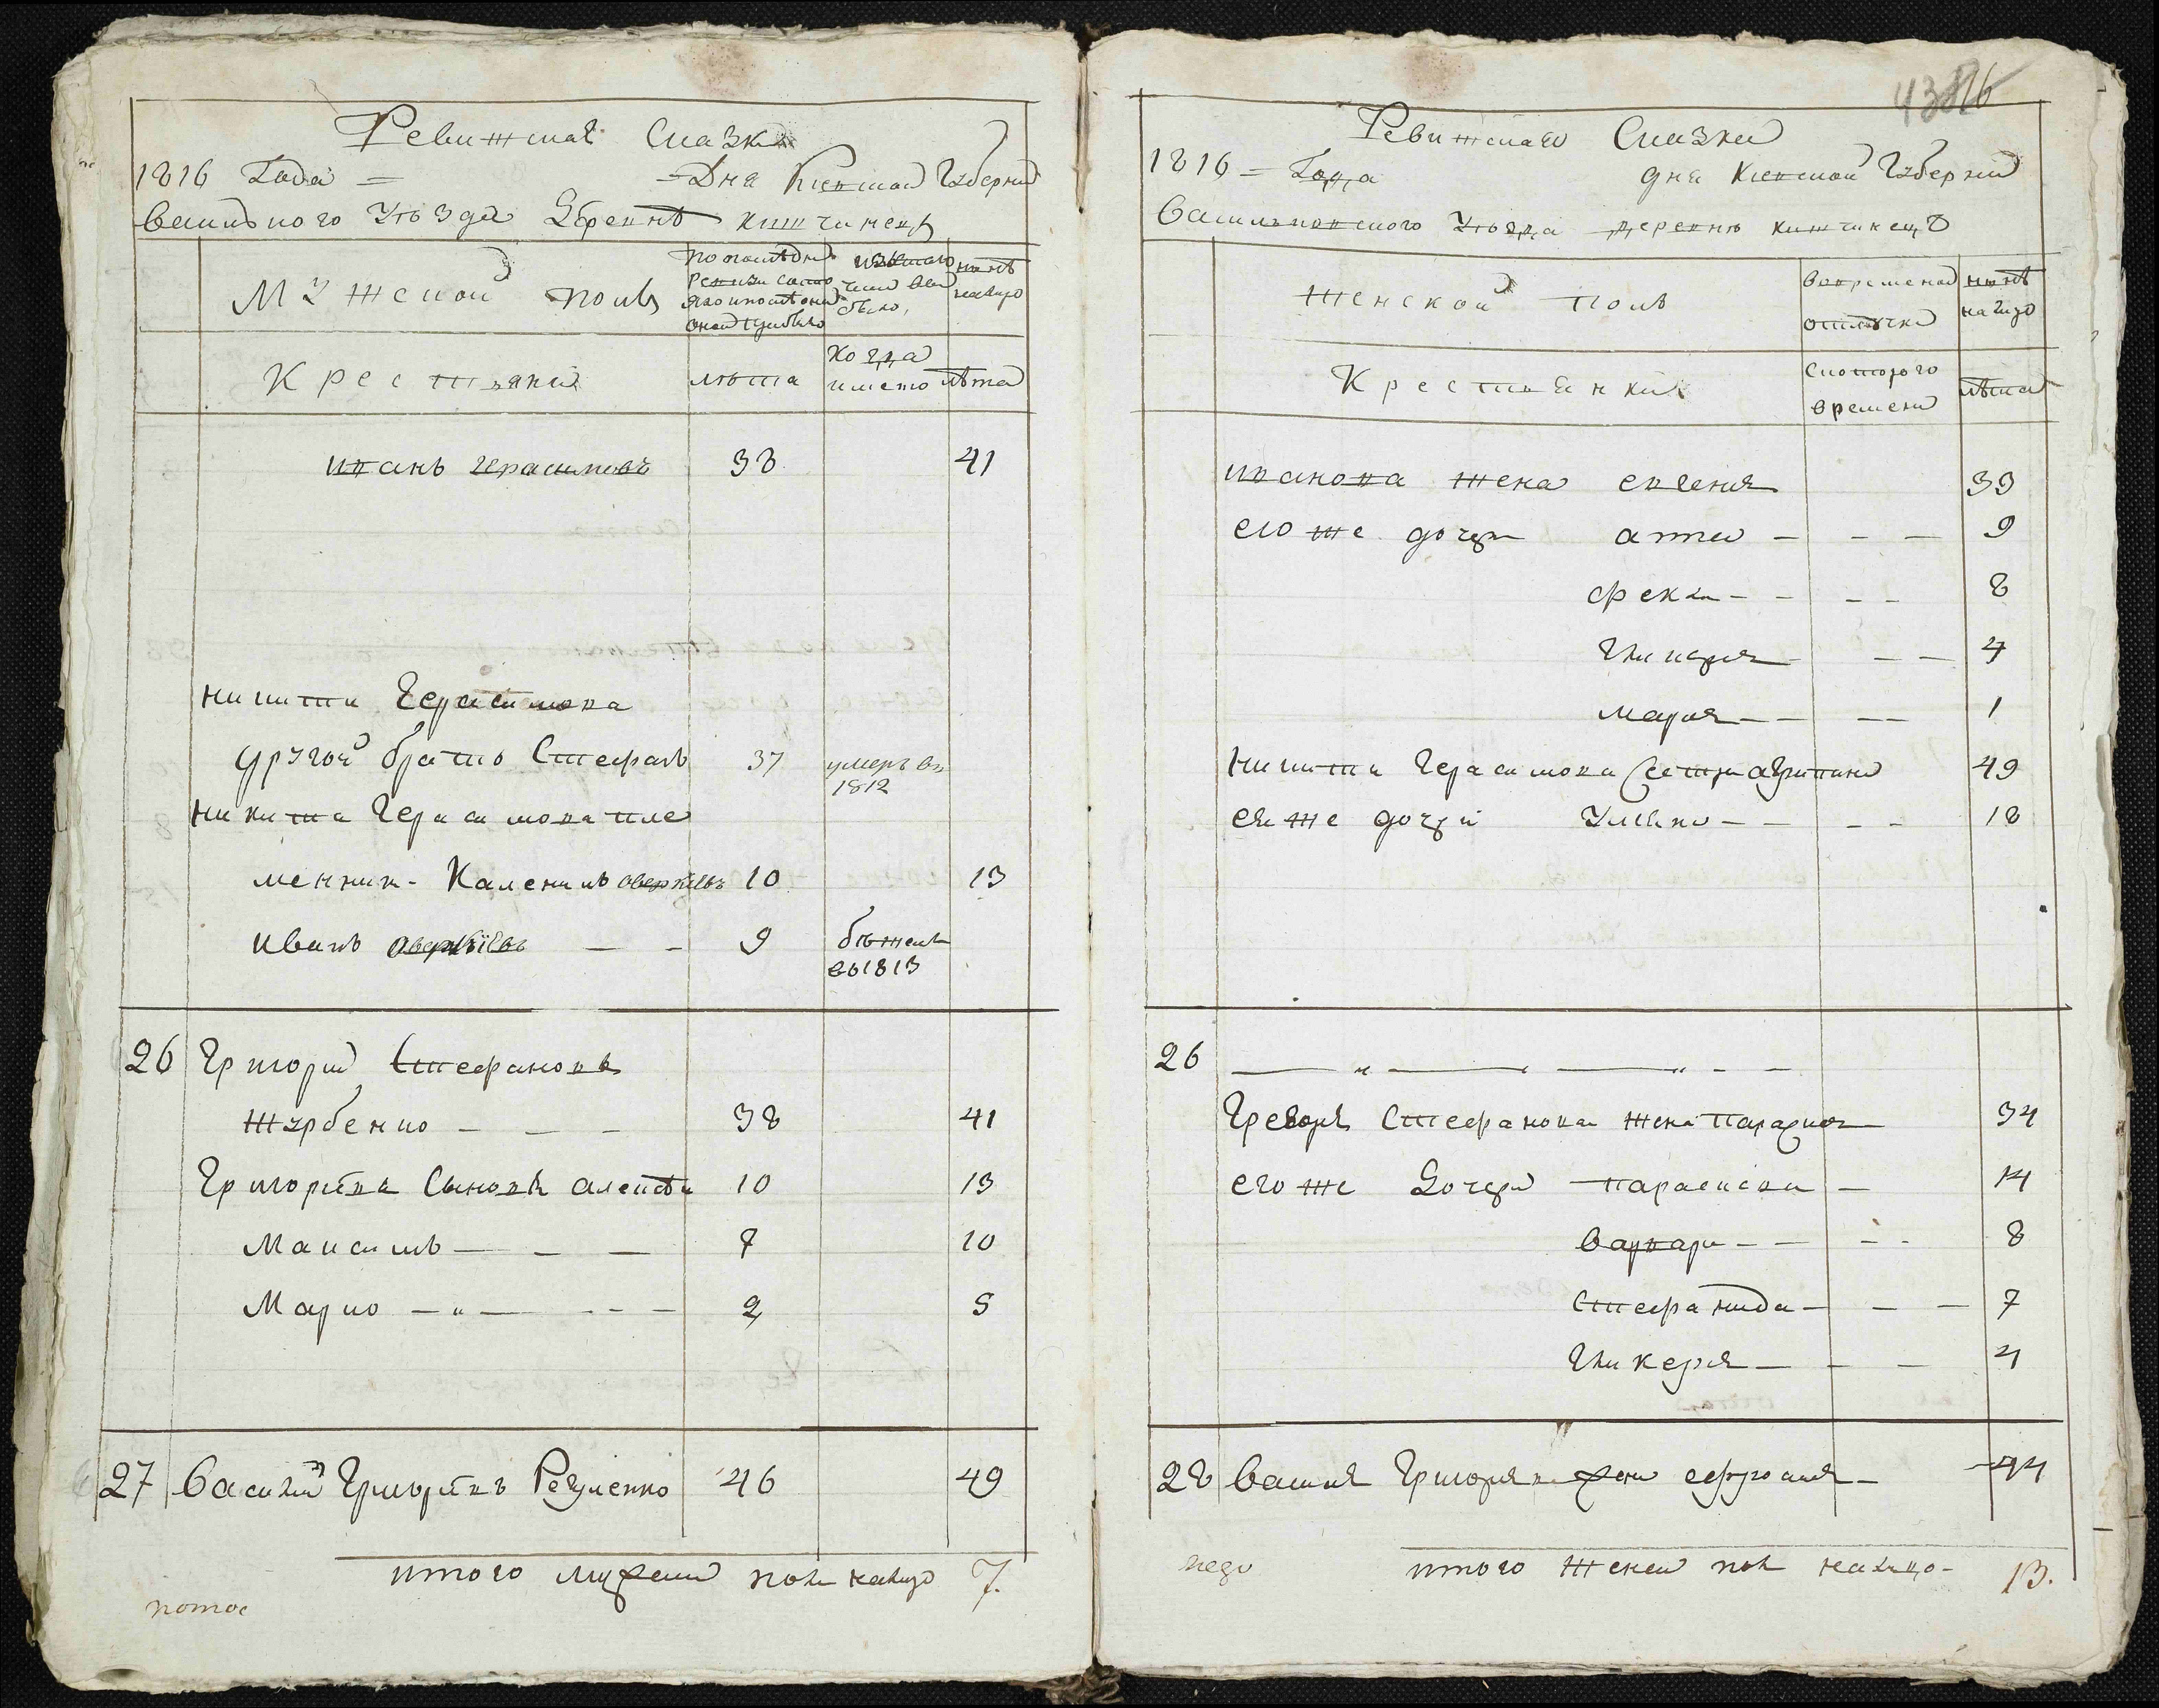 Ревижская Сказка
1816 Года = = Дня Киевской Губернии
василького Уѣзда Деревнѣ кищинецъ
Мужеской полъ
по последней ревизии состояло и после оной прибыло
из того числа выбыло
нынѣ налицо
Крестьяни
лѣта
Когда имено
лѣта
иванъ герасимовъ 38 41
никиты Герасимова
другой братъ Стефанъ 37 умеръ въ 1812
никиты Герасимова пле
менник - Каленикъ оверкіевъ 10 13
иванъ оверкіевъ — - 9 бѣжалъ въ 1813
26 Григорий Стефановъ
Журбенко - - - 38 41
Григорѣва Сыновя алексѣй 10 13
Максимъ — - — 7 10
Марко — " — - - — 2 5
27 Василий Григорѣвъ Редченко 46 49
итого мужеска пола налицо 7.
помое
43 86
Ревижская Сказка
1816 = Года дня Киевской Губернии
Васильковского Уѣзда деревнѣ кищинецъ
Женской полъ
вовременой отлучке
нынѣ налицо
Крестьянки
Скоторого времени
лѣта
иванова жена евгения 33
его же дочери анна — - — 9
фекла - - - - 8
Гликерия - - — 4
мария — — — 1
никиты Герасимова сестра агрипина 49
ея же дочери Улияна - — - - 18
26 — " — — " - -
Грегоря Стефанова жена Параския 34
его же Дочери параскева — 14
варвара - — - - 8
Стефанида — - — 7
Гликерия — - — 4
28 василия Григорява жена ефросиня — 44
итого женска пола налицо - 13.